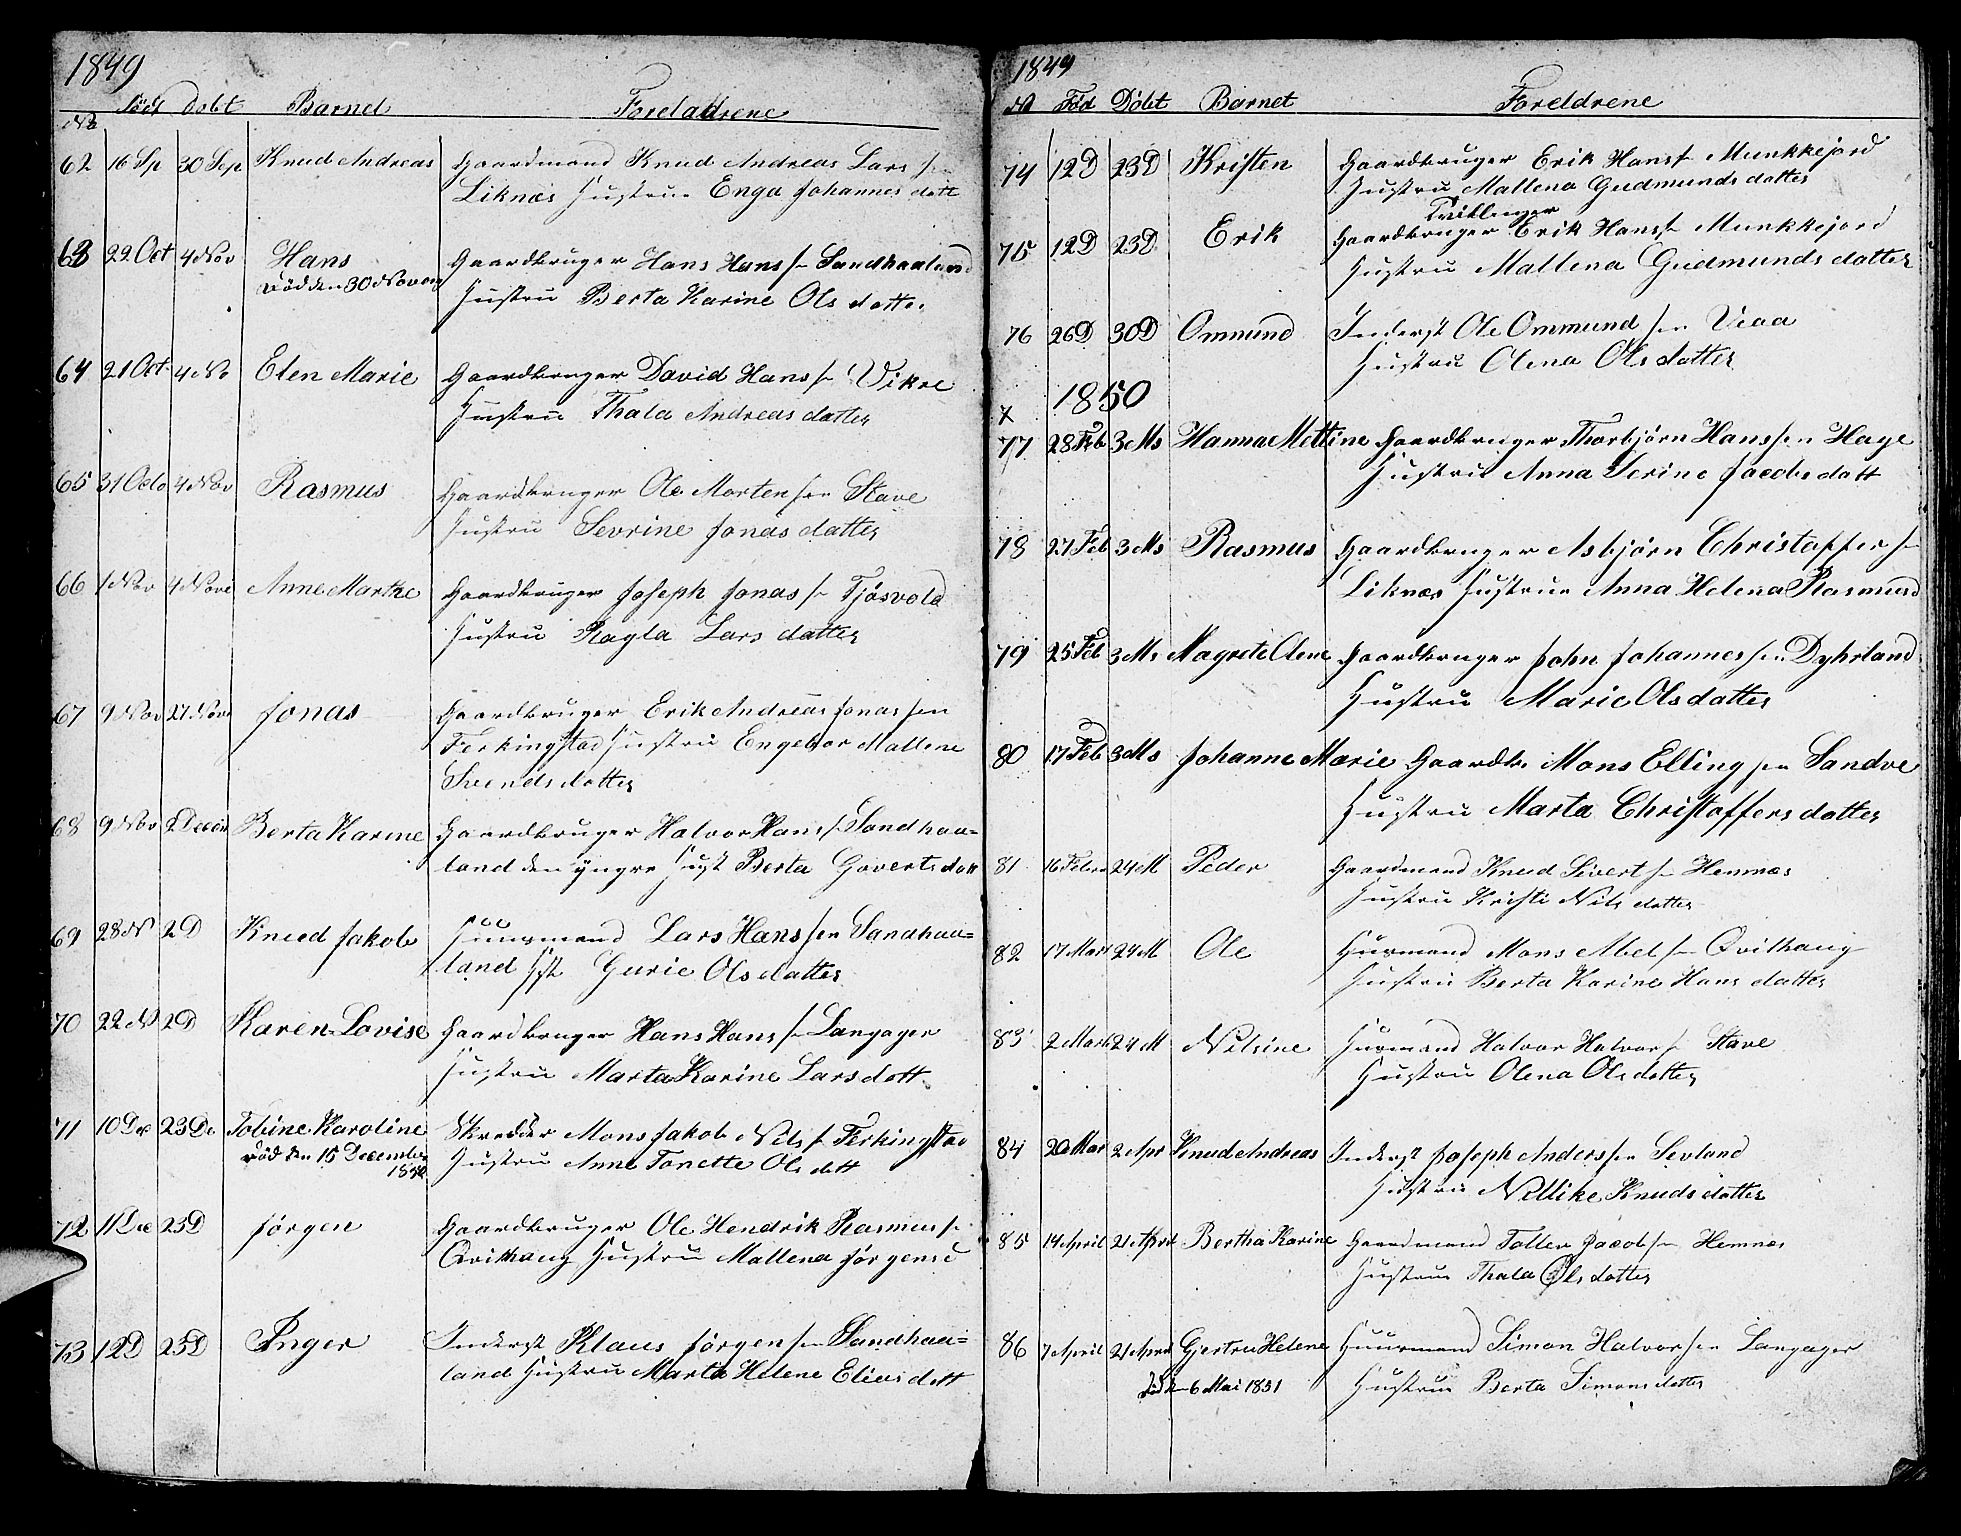 1849
No Född Dobt Barnet Foreladrene
62 16 Sp 30 Sep Knud Andreas Gaardmand Knud Andreas Lars sen
Liknæs Hustrue Enga Johannes datt
63 22 Oct 4 Nov Hans Gaardbruger Hans Hans sn Sandhaaland
död den 30 Novem Hustru Berta Karine Ols datter
64 21 Oct 4 No Elen Marie Gaardbruger David Hans sn Vikre
Hustru Thala Andreas datter
65 31 Octo 4 Nov Rasmus Gaardbruger Ole Morten sen Stave
Hustru Sevrine Jonas datter
66 1 Nov 4 Nove Anne Marthe Gaardbruger Joseph Jonas sn Tjøsvold
Hustru Ragla Lars datter
67 9 Nov 27 Nove Jonas Gaardbruger Erik Andreas Jonas sen
Ferkingstad Hustru Engebor Mallene
Svends datter
68 9 Nov 2 Decem Berta Karine Gaardbruger Halvor Hans sn Sandhaa=
land den yngre Hust Berta Goverts datt
69 28 N 2 D Knud Jakob Huusmand Lars Hans sen Sandhaa=
land Hst Gurie Ols datter
70 22 N 2 D Karen Lovise Gaardbruger Hans Hans sn Langager
Hustru Marta Karine Lars datt
71 10 De 23 De Tobine Karoline Skredder Mons Jakob Nils sn Ferkingstad
död den 15 December Hustru Anne Tonette Ols datt
72 11 De 23 D Jørgen Gaardbruger Ole Hendrik Rasmus sn
Qvilhaug Hustru Mallena Jørgens d
73 12 D 23 D Inger Inderst Klaus Jørgen sen Sandhaa=
land Hustru Marta Helene Elias datt
1849
No Föd Döbt Barnet Foreldrene
74 12 D 23 D Kristen Gaardbruger Erik Hans sn Munkkejord
Hustru Mallena Gudmunds datter
Tvillinger
75 12 D 23 D Erik Gaardbruger Erik Hans sn Munkkejord
Hustru Mallena Gudmunds datter
76 26 D 30 D Ommund Inderst Ole Ommund sen Veaa
Hustru Olena Ols datter
x 1850
77 28 Feb 3 Ms Hanna Mettine Gaardbruger Thorbjørn Hans sen Hage
Hustru Anna Serine Jacobs datt
78 27 Feb 3 Ms Rasmus Gaardbruger Asbjørn Christoffer sn
Liknæs Hustrue Anna Helena Rasmusd
79 25 Feb 3 Ms Magrete Olene Gaardbruger John Johannes sen Dyhrland
Hustru Marie Ols datter
80 17 Feb 3 Ms Johanne Marie Gaardb. Mons Elling sen Sandve
Hustru Marta Christoffers datter
81 16 Febru 24 M Peder Gaardmand Knud Sivert sn Hemnæs
Hustru Kristi Nils datter
82 17 Mart 24 M Ole Husmand Mons Abel sn Qvilhaug
Hustru Berta Karine Hans datter
83 2 Mart 24 M Nilsine Husmand Halvor Halvor sn Stave
Hustru Olena Ols datter
84 20 Mar 2 Apr Knud Andreas Inderst Joseph Anders sen Sevland
Hustru Nillike Knuds datter
85 14 April 21 April Bertha Karine Gaardmand Tollev Jacob sn Hemnæs
Hustrue Thala Ols datter
86 7 April 21 April Gjertru Helene Huusmand Simon Halvor sen Langager
död d 6 Mai 1851 Hustrue Berta Simons datter